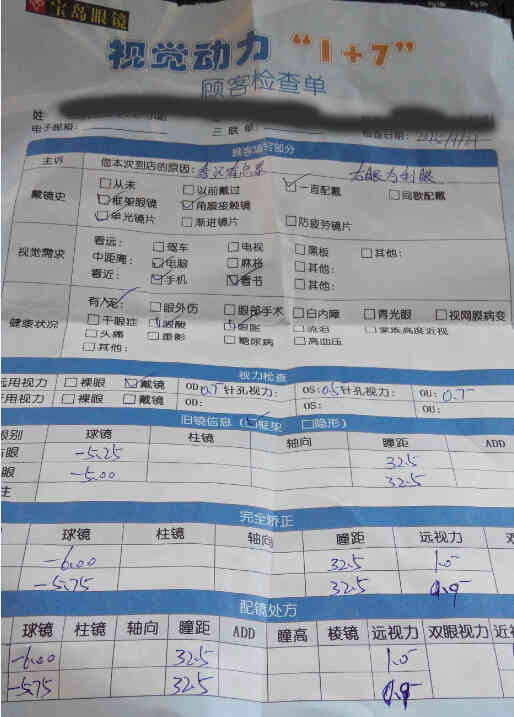 宝岛眼镜
视觉动力 "1+7"
顾客检查单
姓
电子邮箱: 三联单: 检查日期: 2015/9/21
顾客填写部分
主诉 您本次到店的原因: 右眼为利眼
戴镜史 □从未 □以前戴过 ☑一直配戴 □间歇配戴
☑框架眼镜 ☑角膜接触镜
☑单光镜片 □渐进镜片 □防疲劳镜片
视觉需求 看远: □驾车 □电视 □黑板 □其他:
中距离: ☑电脑 □麻将 □其他:
看近: ☑手机 ☑看书 □其他:
健康状况 有/无: □眼外伤 □眼部手术 □白内障 □青光眼 □视网膜病变
□干眼症 ☑眼酸 ☑眼胀 □流泪 □家族高度近视
□头痛 □重影 □糖尿病 □高血压
□其他:
视力检查
远用视力 □裸眼 ☑戴镜 OD: 0.7 针孔视力: OS: 0.5 针孔视力: OU: 0.7
用视力 □裸眼 □戴镜 OD: OS: OU:
旧镜信息 (☑框架 □隐形)
眼别 球镜 柱镜 轴向 瞳距 ADD
右眼 -5.25 32.5
眼 -5.00 32.5
注
完全矫正
球镜 柱镜 轴向 瞳距 远视力 双
-6.00 32.5 1.0
-5.75 32.5 0.9
配镜处方
球镜 柱镜 轴向 瞳距 ADD 瞳高 棱镜 远视力 双眼视力 近视
-6.00 32.5 1.0
-5.75 32.5 0.9